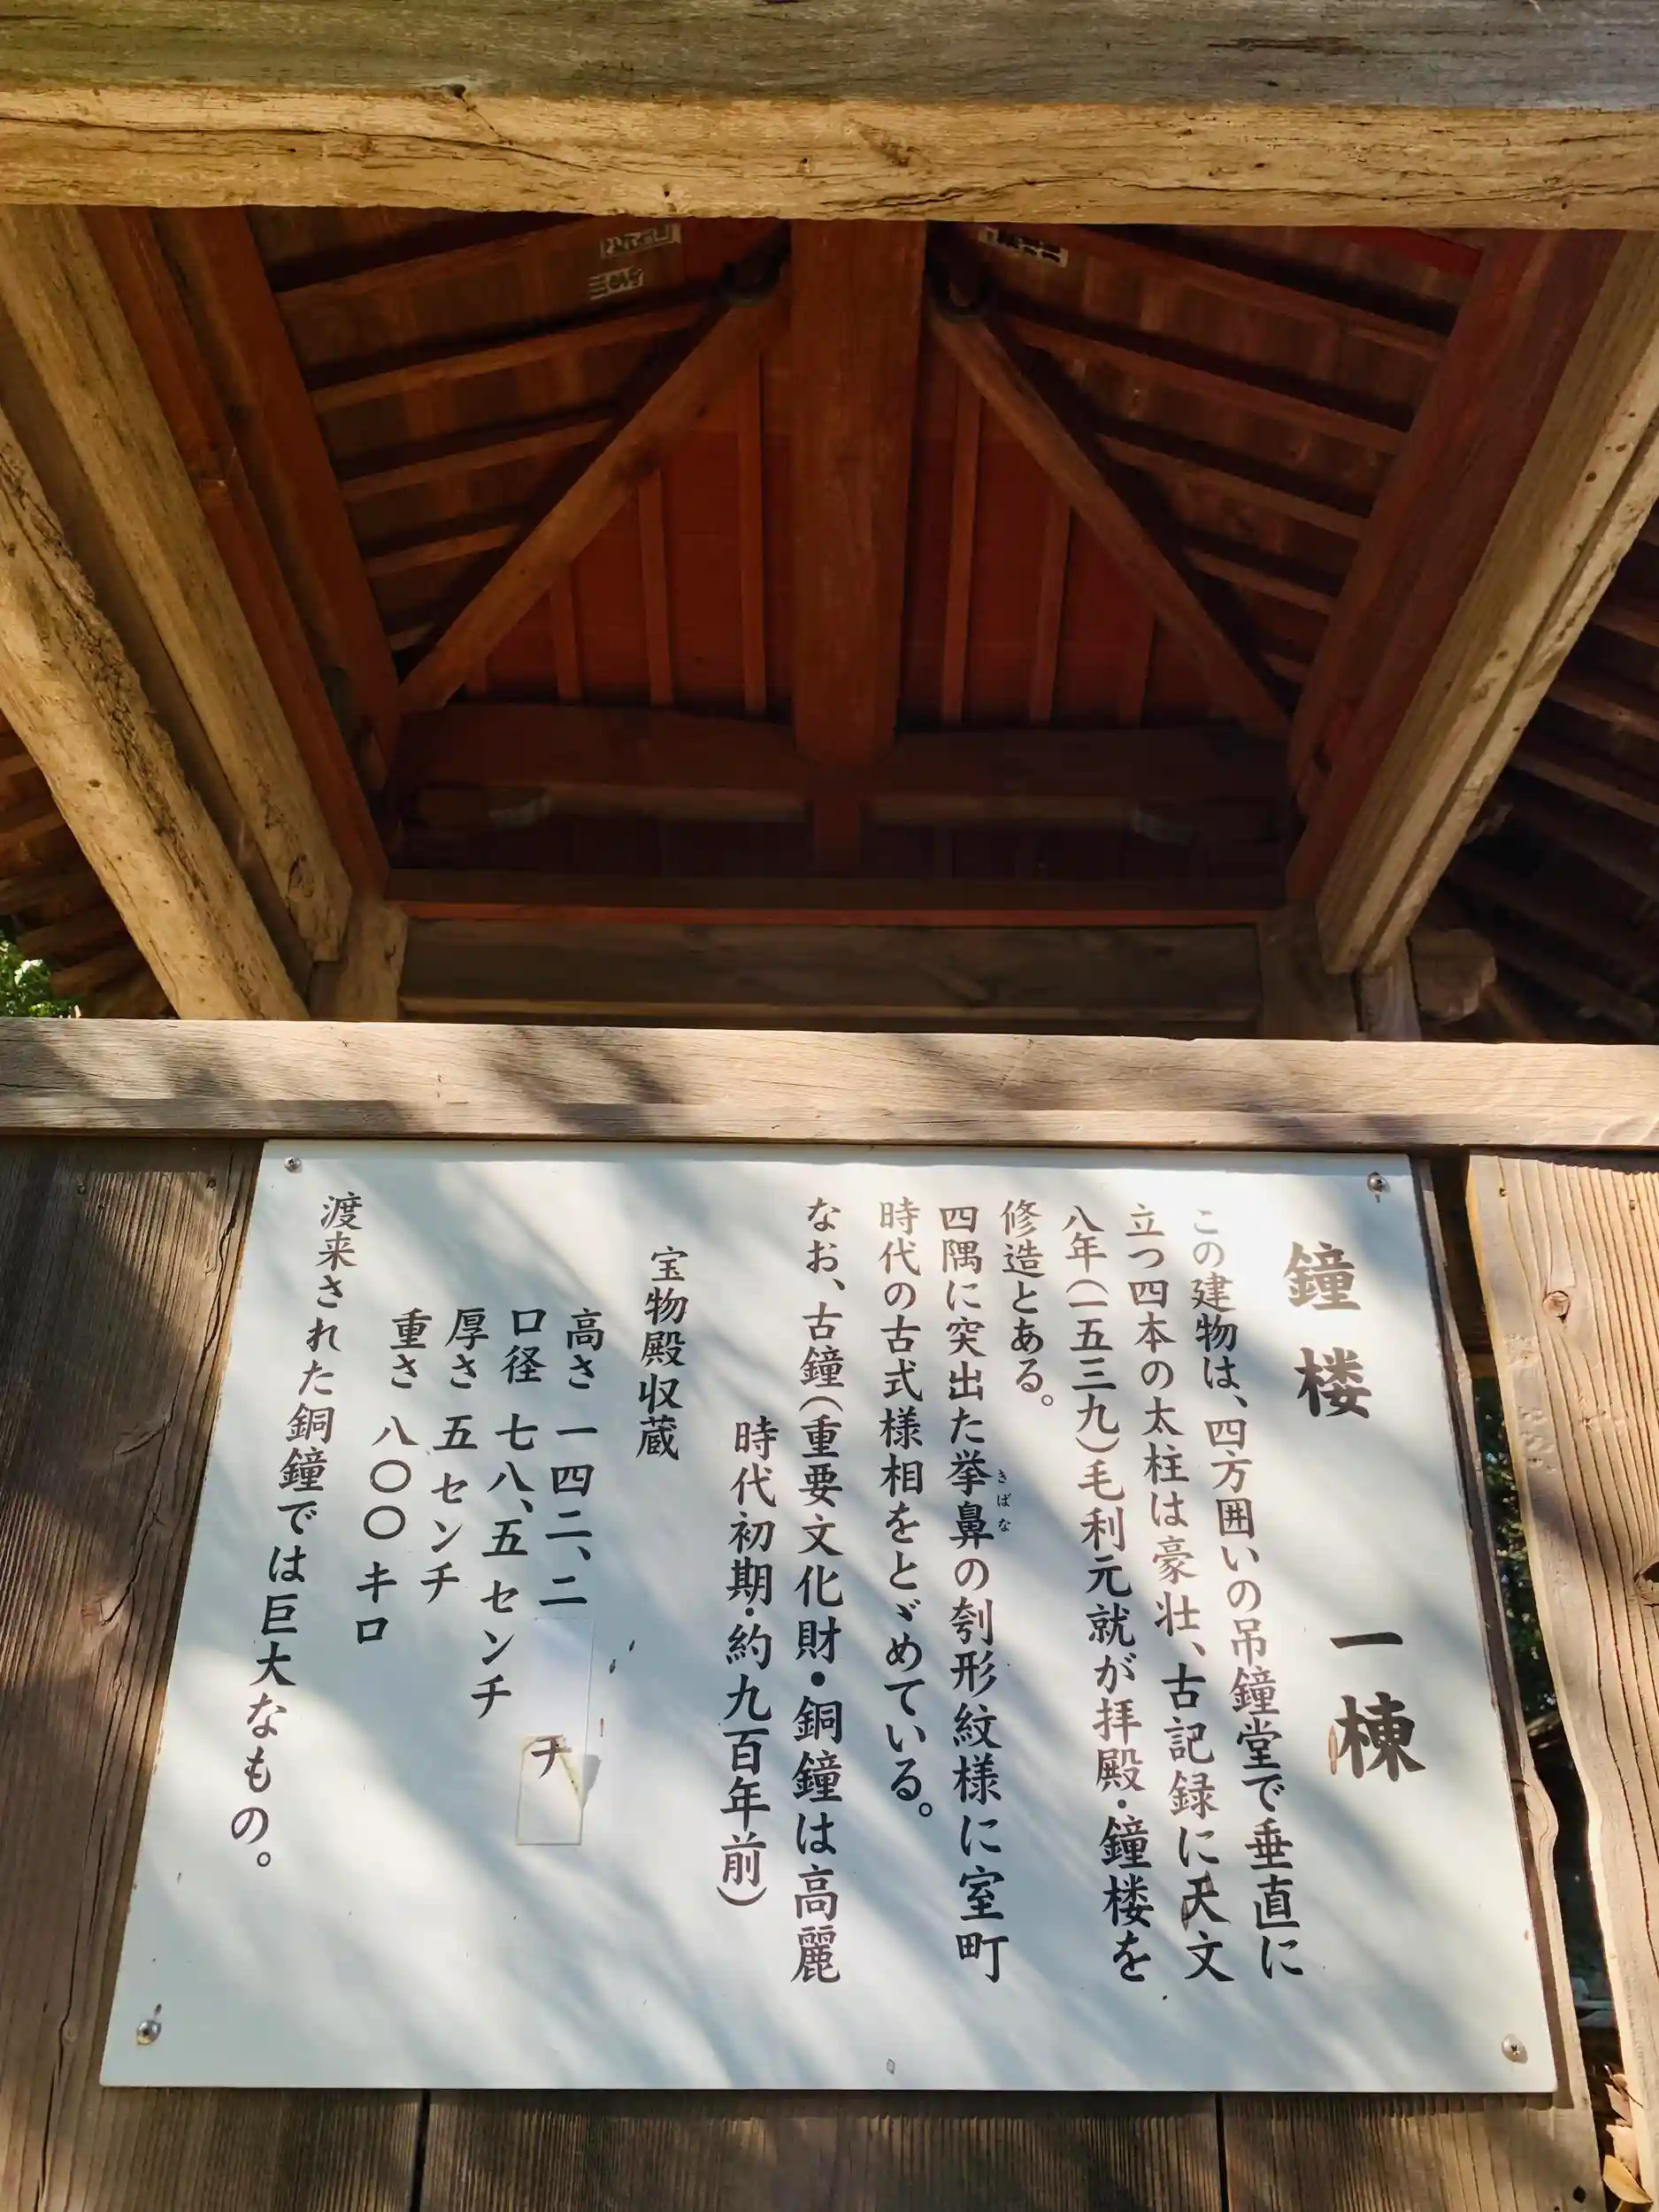 鐘楼 一棟
この建物は、四方囲いの吊鐘堂で垂直に
立つ四本の太柱は豪壮、古記録に天文
八年(一五三九)毛利元就が拝殿・鐘楼を
修造とある。
四隅に突出た挙鼻の刳形紋様に室町
きばな
時代の古式様相をとゞめている。
なお、古鐘(重要文化財・銅鐘は高麗
時代初期・約九百年前)
宝物殿収蔵
高さ 一四二、二 チ
口径 七八、五センチ
厚さ 五センチ
重さ 八〇〇キロ
渡来された銅鐘では巨大なもの。